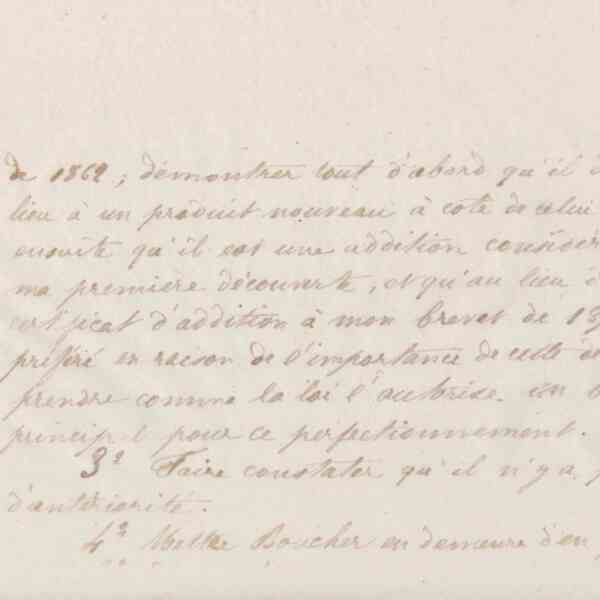 de 1862; démontrer tout d'abord qu'il d
lieu à un produit nouveau à côté de celui
ensuite qu'il est une addition considér
ma première découverte, et qu'au lieu d
certificat d'addition à mon brevet de 18
préféré en raison de l'importance de cette dé
prendre comme la loi l'autorise. un b
principal pour ce perfectionnement.
3º Faire constater qu'il n'y a p
d'antériorité.
4º Mettre Boucher en demeure d'en